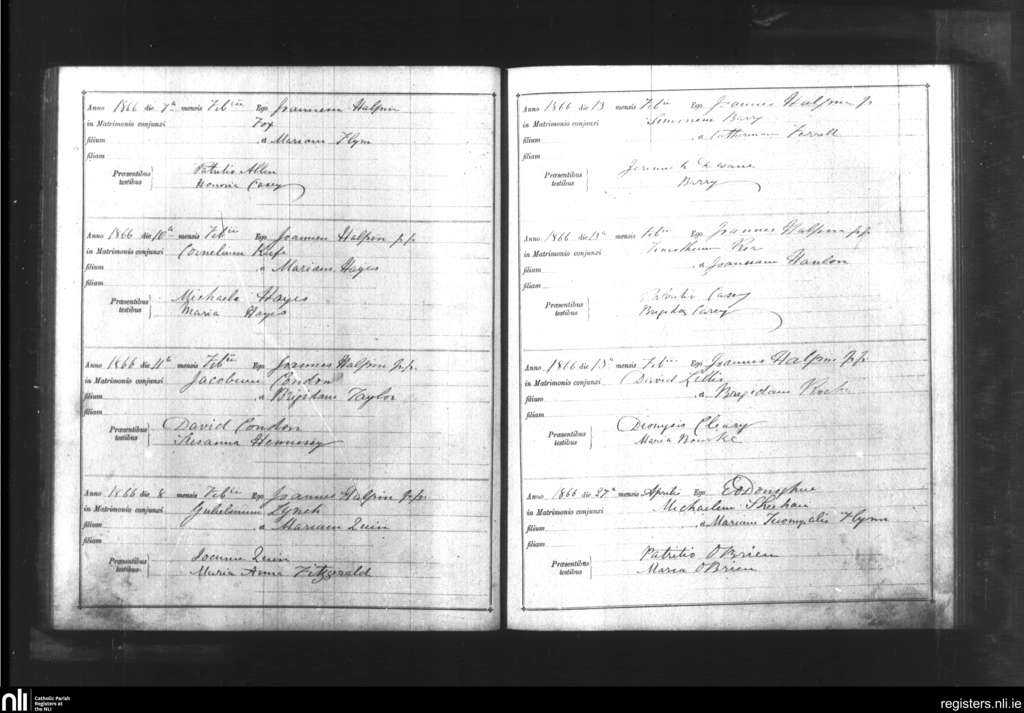 Anno 1866 die 7a mensis Feb rii Ego Joannes Halpin
in Matrimonio conjunxi Fox
filium a Mariam Flynn
filiam
Præsentibus testibus
Patritio Allen
Honoria Casey
Anno 1866 die 10a mensis Feb rii Ego Joannes Halpin p.p.
in Matrimonio conjunxi Cornelium
filium a Mariam Hayes
filiam
Præsentibus testibus
Michaele Hayes
Maria Hayes
Anno 1866 die 11a mensis Feb rii Ego Joannes Halpin p.p.
in Matrimonio conjunxi Jacobum Condon
filium a Brigidam Taylor
filiam
Præsentibus testibus
David Condon
Susanna Hennessy
Anno 1866 die 8 mensis Feb rii Ego Joannes Halpin p.p.
in Matrimonio conjunxi Gulielmum Lynch
filium a Mariam Quin
filiam
Præsentibus testibus
Joanne Quin
Maria Anna Fitzgerald
Anno 1866 die 13 mensis Feb rii Ego Joannes Halpin p.
in Matrimonio conjunxi Barry
filium a Catherinam Farrell
filiam
Præsentibus testibus
Barry
Anno 1866 die 13a mensis Feb rii Ego Joannes Halpin p.p.
in Matrimonio conjunxi
filium a Joannam Hanlon
filiam
Præsentibus testibus
Patritio Casey
Brigida Carey
Anno 1866 die 13a mensis Feb rii Ego Joannes Halpin p.p.
in Matrimonio conjunxi David
filium a Brigidam Roch
filiam
Præsentibus testibus
Dionysio Cleary
Maria Bourke
Anno 1866 die 27a mensis Aprilis Ego E ODonoghue
in Matrimonio conjunxi Michaelem Sheehan
filium a Mariam Flynn
filiam
Præsentibus testibus
Patritio OBrien
Maria OBrien
nli Catholic Parish
Registers at
the NLI
registers.nli.ie